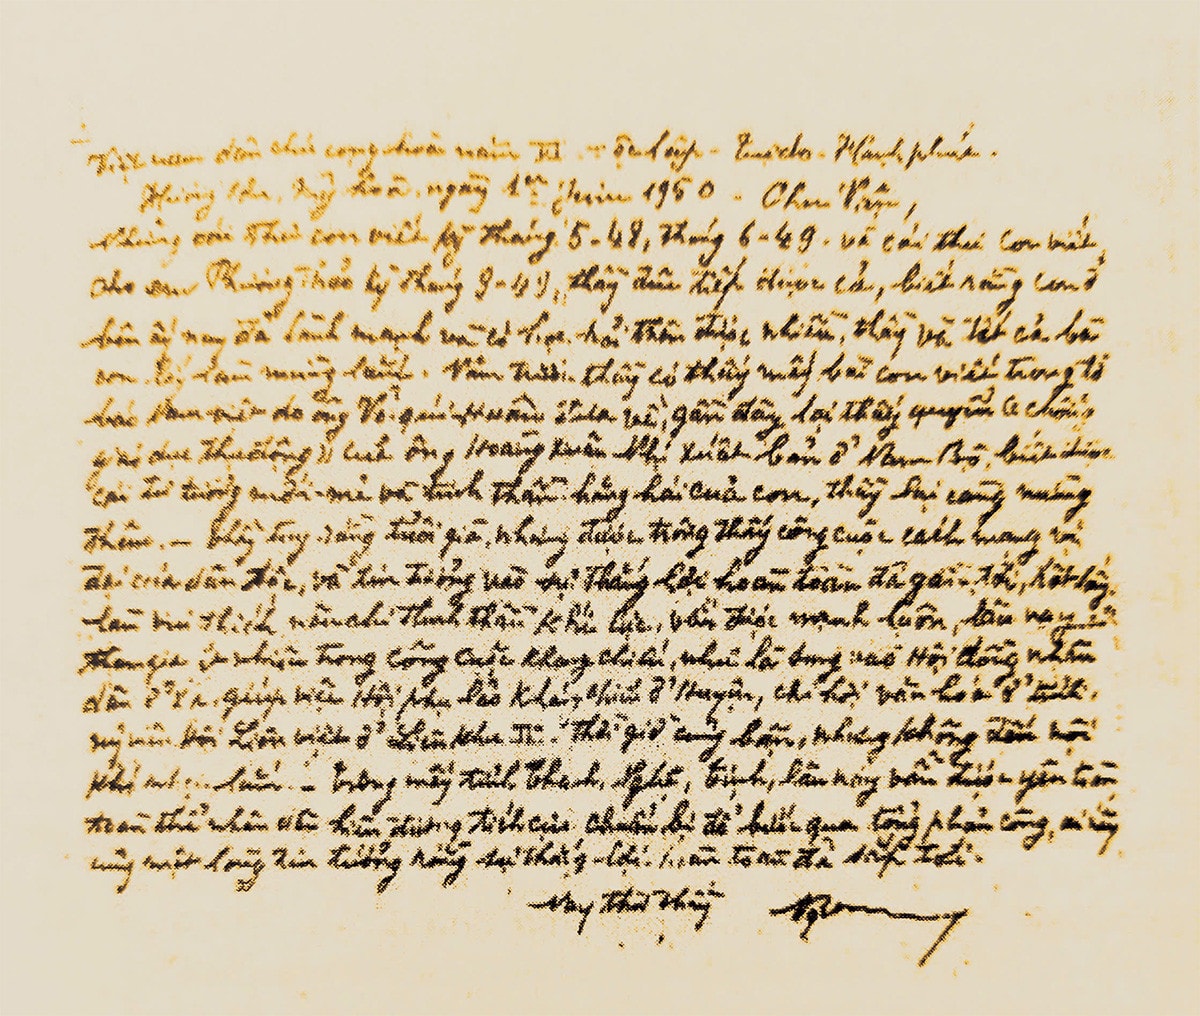 Việt nam dân chủ cộng hoà năm VI - Độc lập - Tự do - Hạnh phúc.
ngày 1er Juin 1950 - Chu Văn,
Những cái thư con viết kỳ tháng 5-48, tháng 6-49 và cái thư con viết
cho em Phương Thảo kỳ tháng 9-49, thầy đều tiếp được cả, biết rằng con ở
bên ấy nay đã lành mạnh và có học hỏi thêm được nhiều, thầy và tất cả bà
con lấy làm mừng lắm. Năm trước thầy có thấy mấy bài con viết trong tờ
báo Nam việt do ông Võ quí Huân đưa về, gần đây lại thấy quyển « chống
giáo dục thụ động » của ông Hoàng Xuân Nhị xuất bản ở Nam Bộ, biết được
cái tư tưởng mới mẻ và tinh thần hăng hái của con, thầy lại càng mừng
thêm. — Thầy tuy rằng tuổi già, nhưng được trông thấy công cuộc cách mạng vĩ
đại của dân tộc, và tin tưởng vào sự thắng lợi hoàn toàn đã gần tới, hết lòng
làm vui thích, nên chi tinh thần khí lực, vẫn được mạnh luôn, lâu nay
tham gia trong công cuộc kháng chiến, như là sung vào Hội đồng nhân
dân ở xã, giúp việc Hội phụ lão ở Huyện, chi hội văn hoá ở tỉnh,
uỷ viên Hội Liên việt ở Liên khu IV. Thì giờ cũng bận, nhưng không đến nỗi
khó nhọc lắm. — Trong mấy tỉnh Thanh, Nghệ, Tịnh, lâu nay vẫn được yên toàn
toàn thể nhân dân hiện đương tích cực chuẩn bị để bước qua tổng phản công, ai nấy
cũng một lòng tin tưởng rằng sự thắng lợi hoàn toàn đã sắp tới.
Nay thư Thầy